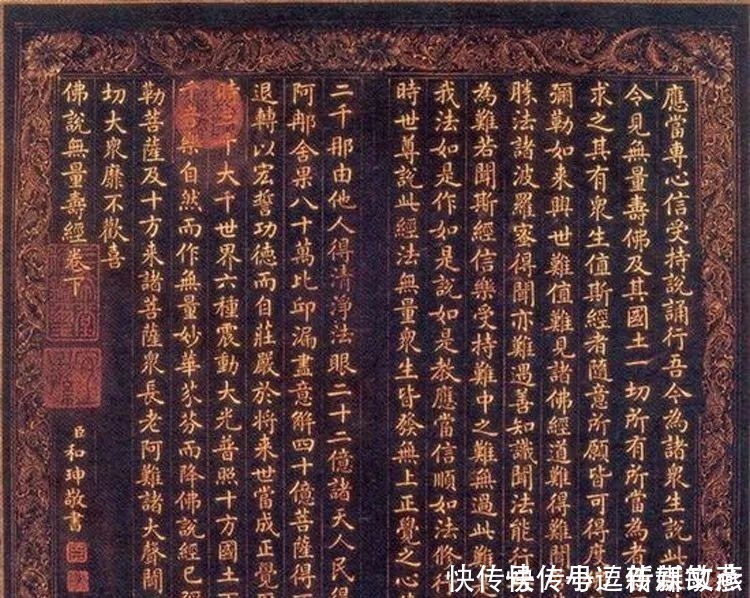 應當專心信受持說誦行吾今為諸衆生說此
令見無量壽佛及其國土一切所有所當為者
求之其有衆生值斯經者隨意所願皆可得度
彌勒如来興世難值難見諸佛經道難得難聞
勝法諸波羅蜜得聞亦難遇善知識聞法能行
為難若聞斯經信樂受持難中之難無過此難
我法如是作如是說如是教應當信順如法修
時世尊說此經法無量衆生皆發無上正覺之心
二千那由他人得清淨法眼二十二億諸天人民得
阿那舍果八十萬比邱漏盡意解四十億菩薩得
退轉以宏誓功德而自莊嚴於将来世當成正覺
時大千世界六種震動大光普照十方國土
樂自然而作無量妙華芬而降佛說經已
勒菩薩及十方来諸菩薩衆長老阿難諸大聲聞
切大衆靡不歡喜
佛說無量壽經卷下
臣和珅敬書
快传